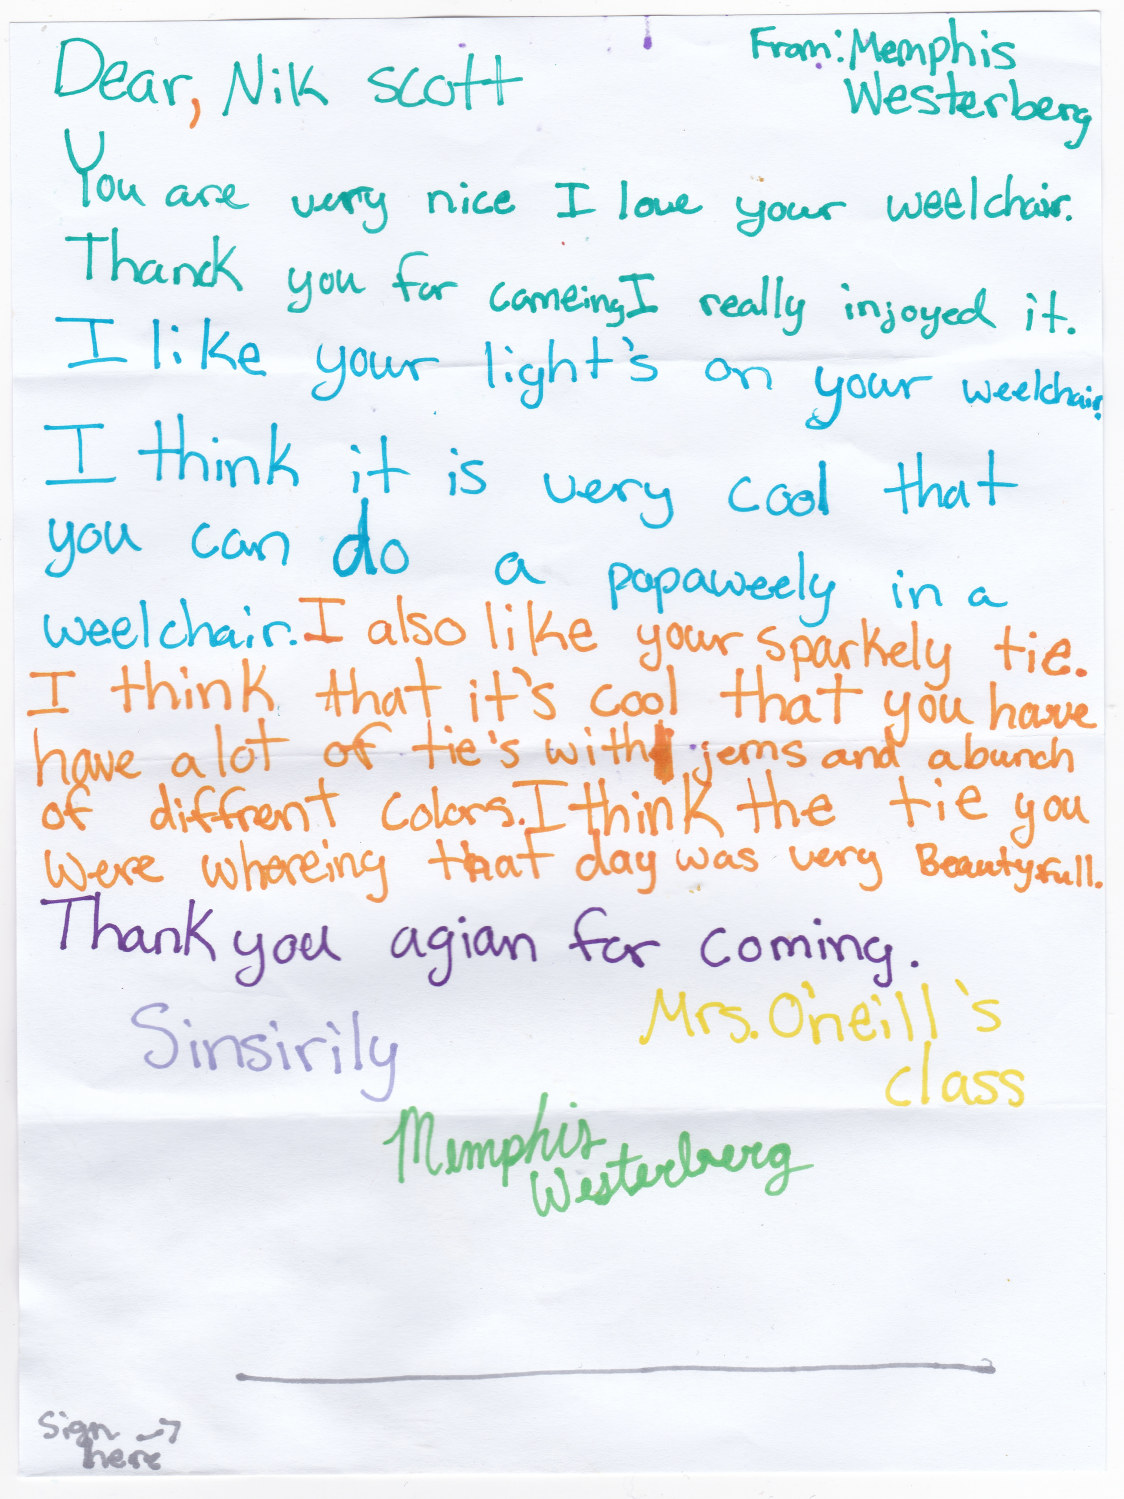 From: Memphis
Westerberg
Dear, Nik scott
You are very nice I love your weelchair.
Thanck you for cameing I really injoyed it.
I like your light's on your weelchair.
I think it is very cool that
you can do a papaweely in a
weelchair. I also like your sparkely tie.
I think that it's cool that you have
have a lot of tie's with jems and a bunch
of diffrent colors. I think the tie you
were whereing that day was very Beautyfull.
Thank you agian for coming.
Sinsirily
Mrs. O'neill's
class
Memphis
Westerberg
Sign
here